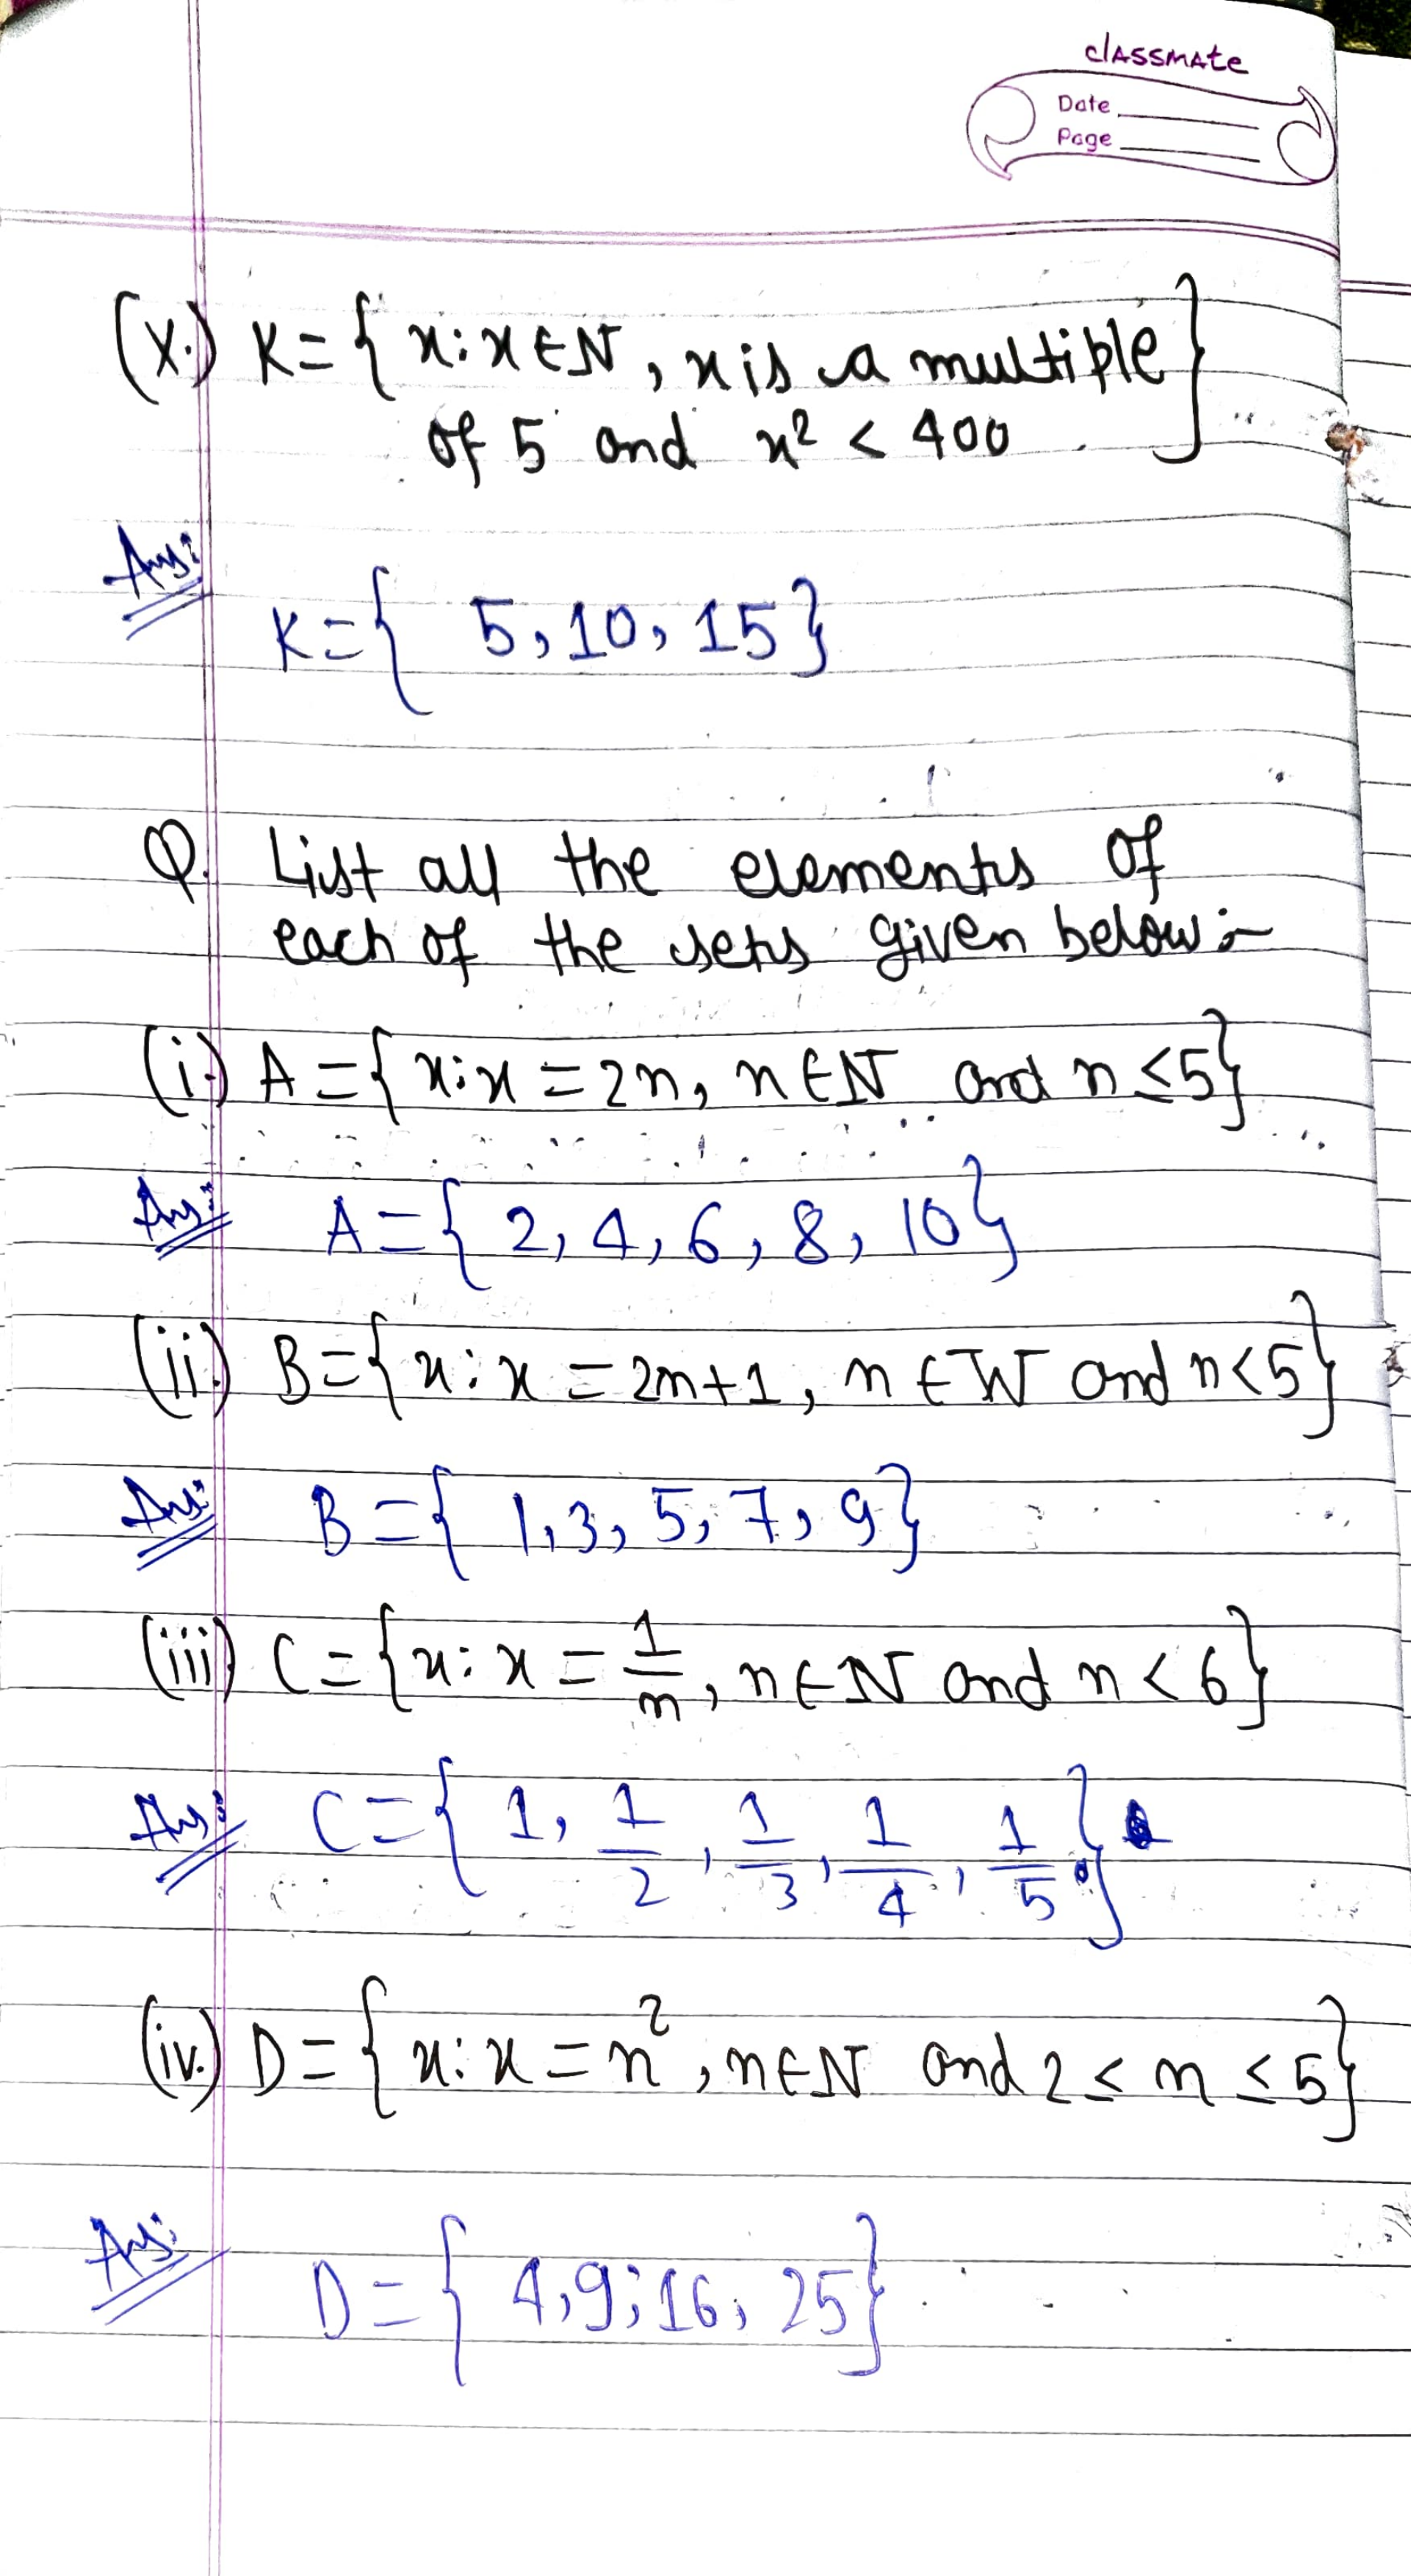 classmate
Date
Page
(x.) K = { x : x ∈ N, x is a multiple
of 5 and x² < 400 }
Ans:
K = { 5, 10, 15 }
Q. List all the elements of
each of the sets given below :-
(i.) A = { x : x = 2n, n ∈ N and n ≤ 5 }
Ans: A = { 2, 4, 6, 8, 10 }
(ii.) B = { x : x = 2n+1, n ∈ W and n < 5 }
Ans: B = { 1, 3, 5, 7, 9 }
(iii) C = { x : x = 1/n, n ∈ N and n < 6 }
Ans: C = { 1, 1/2, 1/3, 1/4, 1/5 }
(iv.) D = { x : x = n², n ∈ N and 2 ≤ n ≤ 5 }
Ans:
D = { 4, 9, 16, 25 }